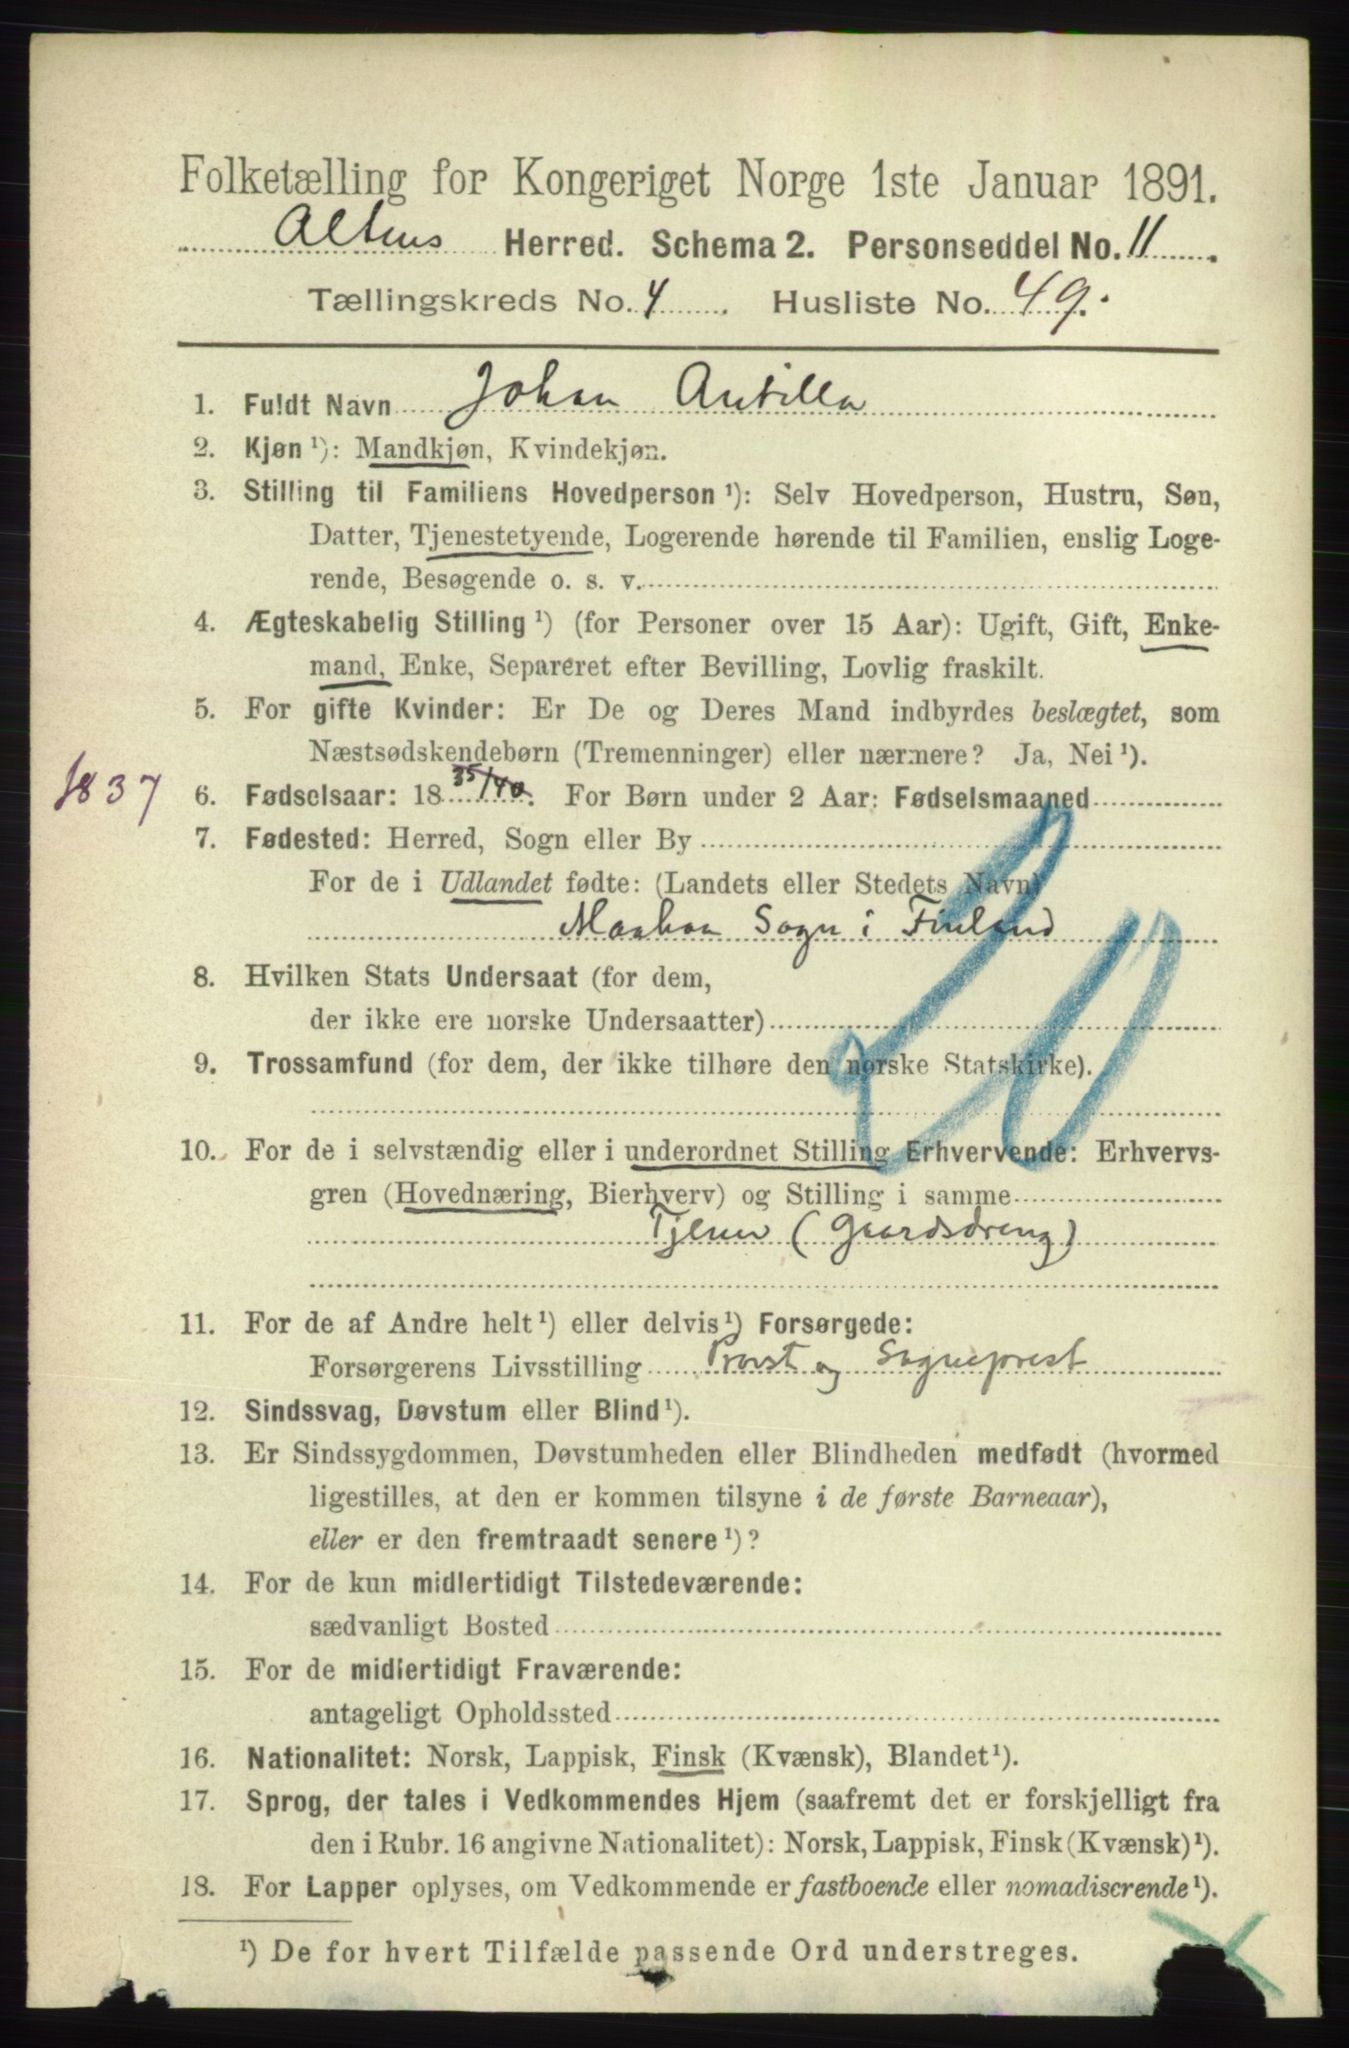 Folketælling for Kongeriget Norge 1ste Januar 1891.
Altens Herred. Schema 2. Personseddel No. 11.
Tællingskreds No. 4. Husliste No. 49.
1. Fuldt Navn Johan Antilla
2. Kjøn ¹): Mandkjøn, Kvindekjøn.
3. Stilling til Familiens Hovedperson ¹): Selv Hovedperson, Hustru, Søn,
Datter, Tjenestetyende, Logerende hørende til Familien, enslig Loge-
rende, Besøgende o. s. v.
4. Ægteskabelig Stilling ¹) (for Personer over 15 Aar): Ugift, Gift, Enke-
mand, Enke, Separeret efter Bevilling, Lovlig fraskilt.
5. For gifte Kvinder: Er De og Deres Mand indbyrdes beslægtet, som
Næstsødskendebørn (Tremenninger) eller nærmere? Ja, Nei ¹).
1837 6. Fødselsaar: 18 35/40. For Børn under 2 Aar: Fødselsmaaned
7. Fødested: Herred, Sogn eller By
For de i Udlandet fødte: (Landets eller Stedets Navn)
Sogn i Finland
8. Hvilken Stats Undersaat (for dem,
der ikke ere norske Undersaatter)
9. Trossamfund (for dem, der ikke tilhøre den norske Statskirke).
10. For de i selvstændig eller i underordnet Stilling Erhvervende: Erhvervs-
gren (Hovednæring, Bierhverv) og Stilling i samme
Tjener (Gaardsdreng)
11. For de af Andre helt ¹) eller delvis ¹) Forsørgede:
Forsørgerens Livsstilling Provst og Sogneprest
12. Sindssvag, Døvstum eller Blind ¹).
13. Er Sindssygdommen, Døvstumheden eller Blindheden medfødt (hvormed
ligestilles, at den er kommen tilsyne i de første Barneaar),
eller er den fremtraadt senere ¹)?
14. For de kun midlertidigt Tilstedeværende:
sædvanligt Bosted
15. For de midlertidigt Fraværende:
antageligt Opholdssted
16. Nationalitet: Norsk, Lappisk, Finsk (Kvænsk), Blandet ¹).
17. Sprog, der tales i Vedkommendes Hjem (saafremt det er forskjelligt fra
den i Rubr. 16 angivne Nationalitet): Norsk, Lappisk, Finsk (Kvænsk) ¹).
18. For Lapper oplyses, om Vedkommende er fastboende eller nomadiserende ¹).
¹) De for hvert Tilfælde passende Ord understreges.